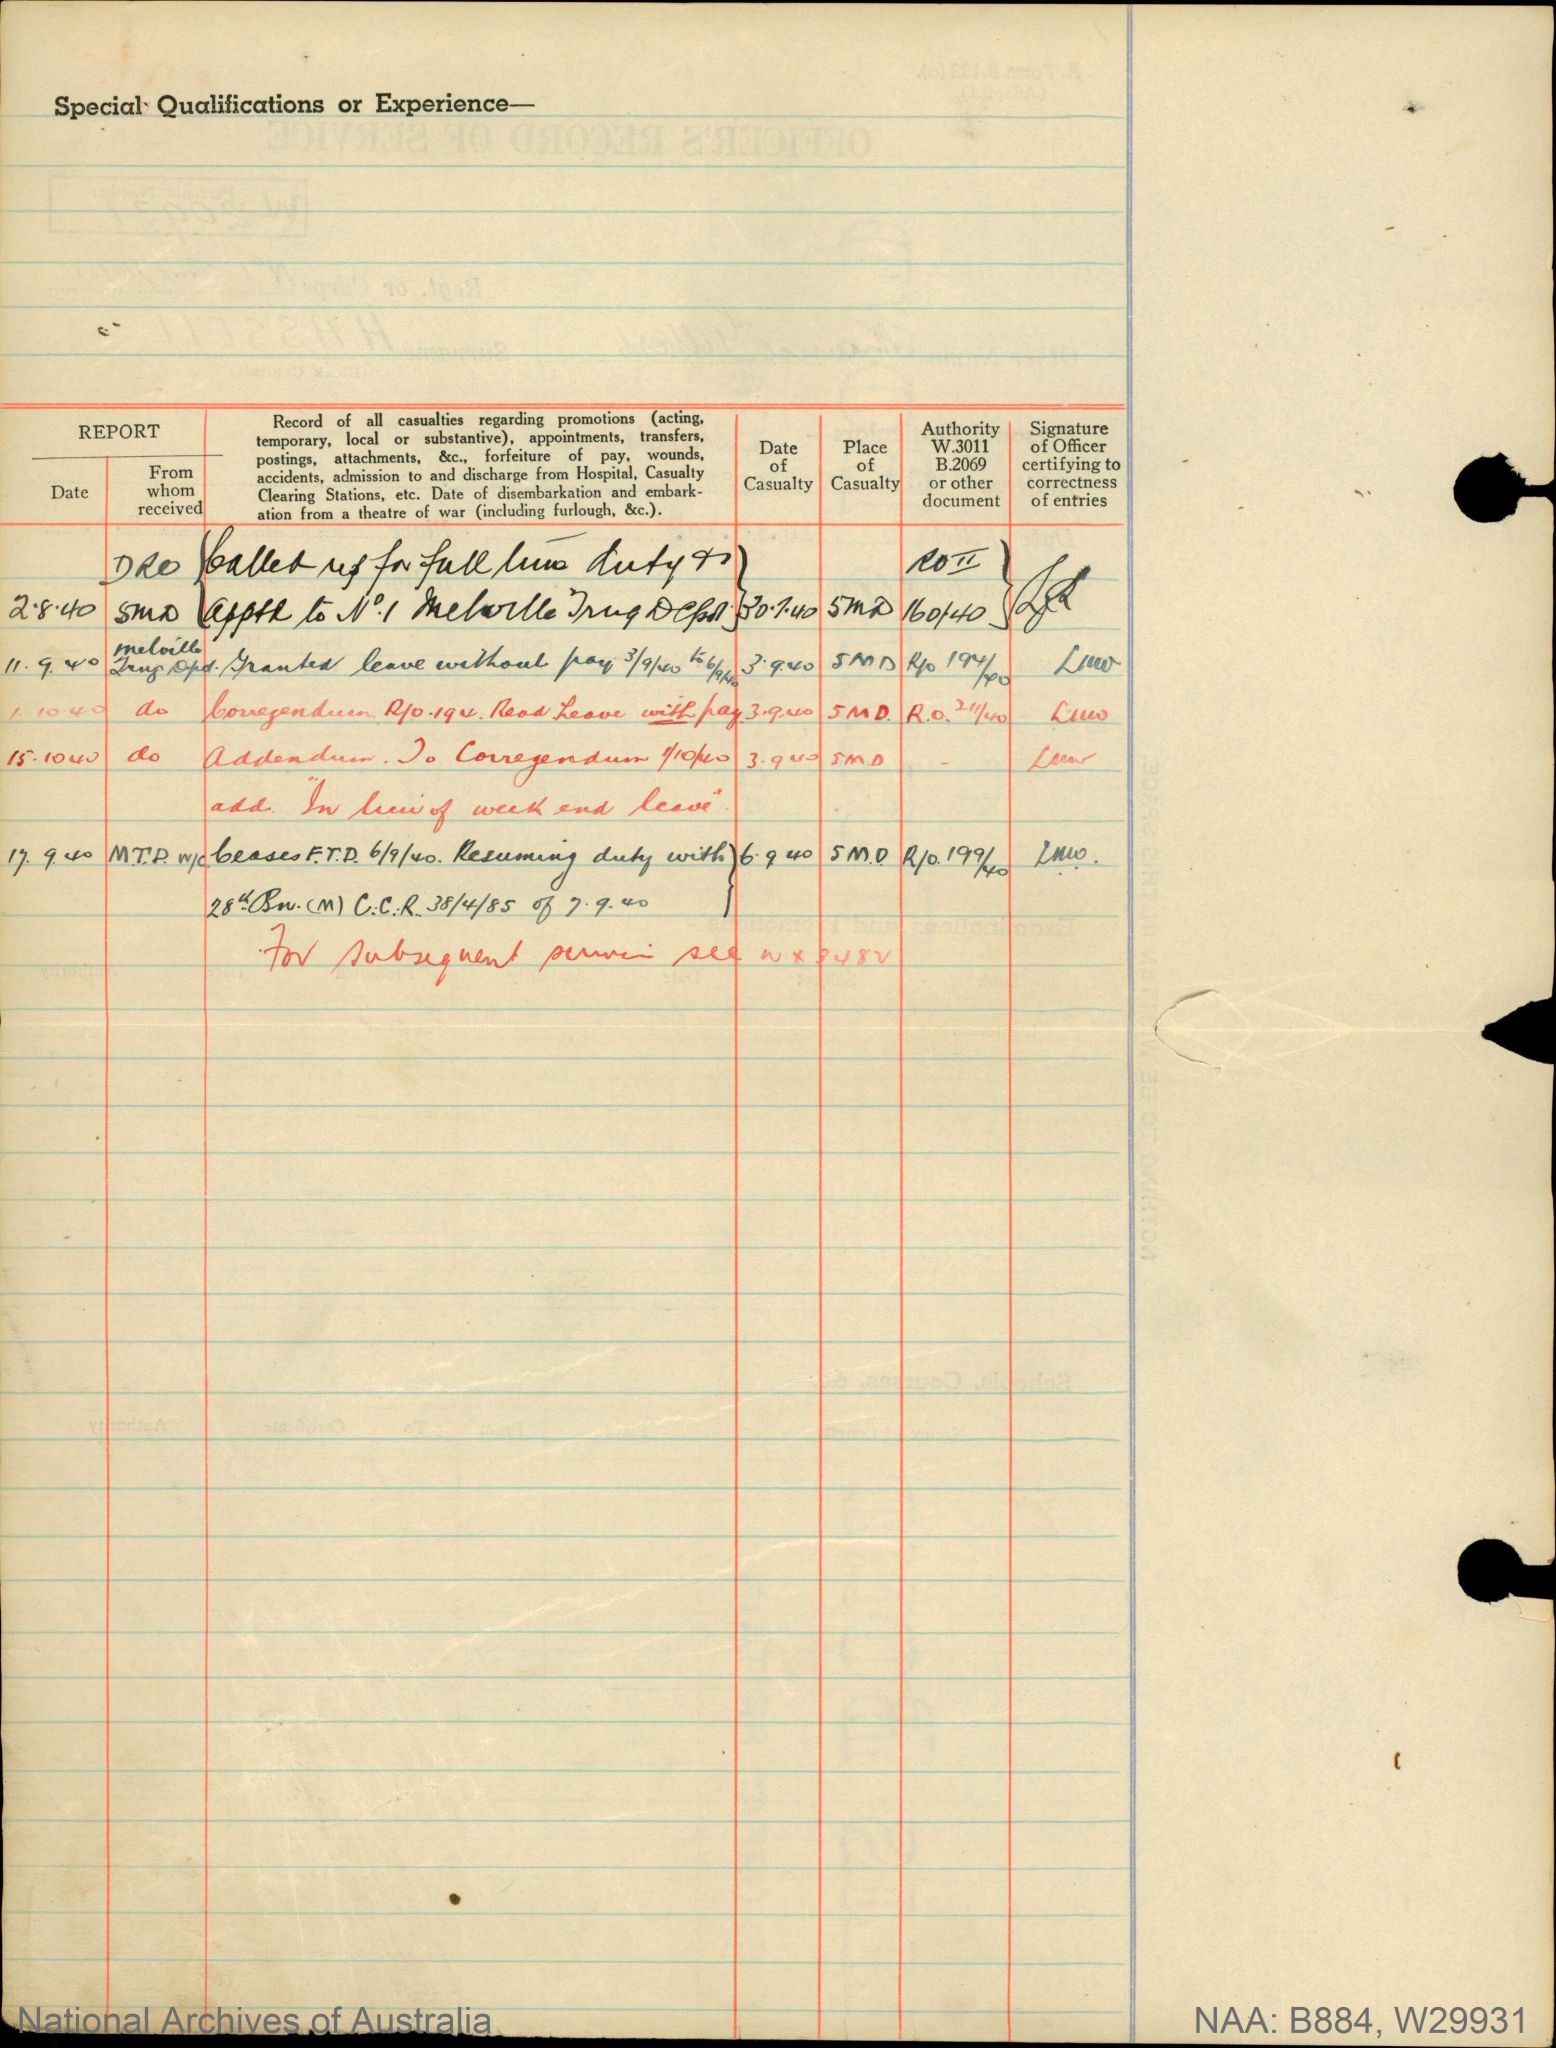 Special Qualifications or Experience—
REPORT
Date
From
whom
received
Record of all casualties regarding promotions (acting,
temporary, local or substantive), appointments, transfers,
postings, attachments, &c., forfeiture of pay, wounds,
accidents, admission to and discharge from Hospital, Casualty
Clearing Stations, etc. Date of disembarkation and embark-
ation from a theatre of war (including furlough, &c.).
Date
of
Casualty
Place
of
Casualty
Authority
W.3011
B.2069
or other
document
Signature
of Officer
certifying to
correctness
of entries
DRO Called up for full time duty & RO II
2.8.40 5MD Apptd to No.1 Melville Trng Depot 30.7.40 5MD 160/40
11.9.40 Melville Trng Dpt. Granted leave without pay 3/9/40 to 6/9/40 3.9.40 5MD R/O 194/40 LMW
1.10.40 do Corregendum R/O.194. Read Leave with pay 3.9.40 5MD. R.O. 211/40 LMW
15.10.40 do Addendum. To Corregendum 1/10/40 3.9.40 5M.D - LMW
add. "In lieu of week end leave"
17.9.40 M.T.D. W/C Ceases F.T.D. 6/9/40. Resuming duty with 6.9.40 5M.D R/O.199/40 LMW.
28th Bn. (M) C.C.R. 38/4/85 of 7.9.40
For subsequent service see WX3482
National Archives of Australia
NAA: B884, W29931